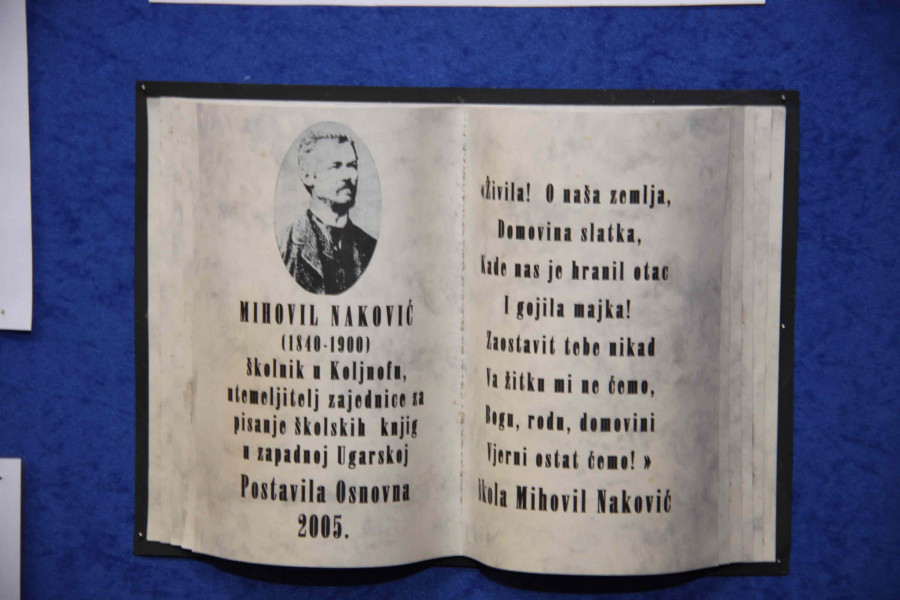 MIHOVIL NAKOVIĆ
(1840-1900)
školnik u Koljnofu,
utemeljitelj zajednice za
pisanje školskih knjig
u zapadnoj Ugarskoj
Postavila Osnovna
2005.
«Živila! O naša zemlja,
Domovina slatka,
Kade nas je hranil otac
I gojila majka!
Zaostavit tebe nikad
Va žitku mi ne ćemo,
Bogu, rodu, domovini
Vjerni ostat ćemo! »
škola Mihovil Naković